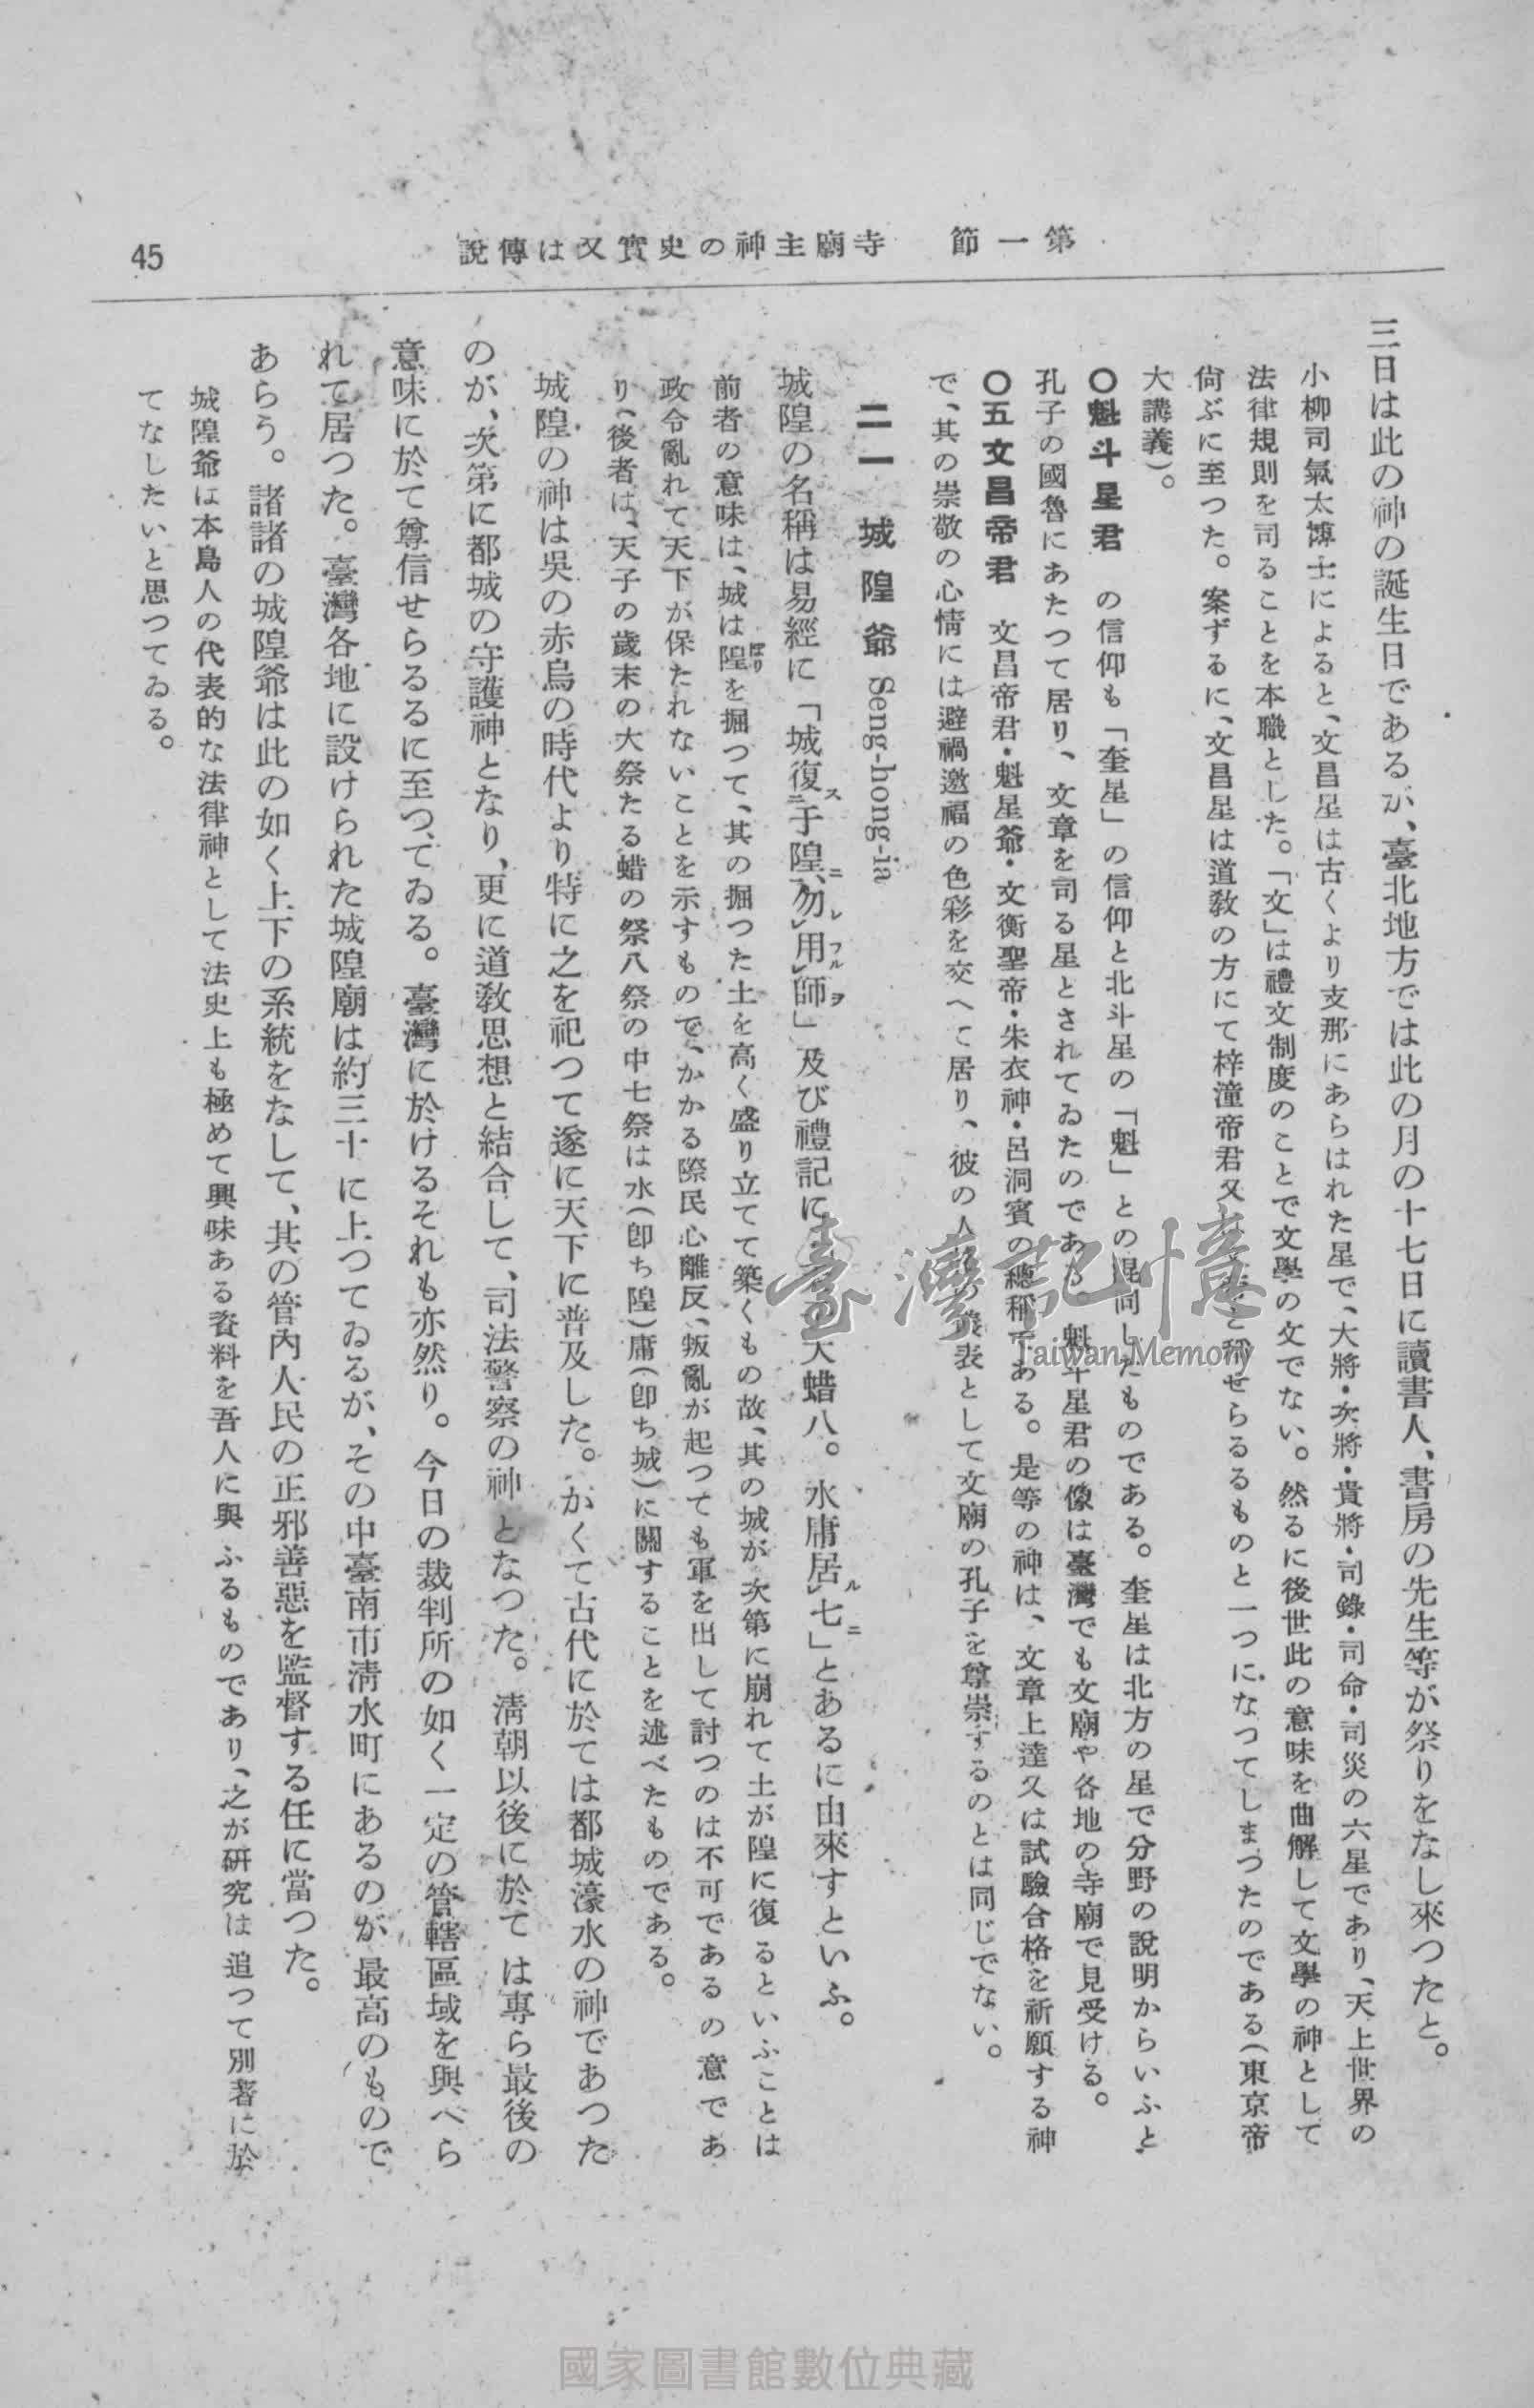 第一節　寺廟主神の史實又は傳說
45
三日は此の神の誕生日であるが、臺北地方では此の月の十七日に讀書人、書房の先生等が祭りをなし來つたと。
小柳司氣太博士によると、文昌星は古くより支那にあらはれた星で、大將・次將・貴將・司錄・司命・司災の六星であり、天上世界の
法律規則を司ることを本職とした。「文」は禮文制度のことで文學の文でない。然るに後世此の意味を曲解して文學の神として
尙ぶに至つた。案ずるに、文昌星は道敎の方にて梓潼帝君又 と稱せらるるものと一つになつてしまつたのである(東京帝
大講義)。
〇魁斗星君　の信仰も「奎星」の信仰と北斗星の「魁」との混同したものである。奎星は北方の星で分野の說明からいふと
孔子の國魯にあたつて居り、文章を司る星とされてゐたのである。魁斗星君の像は臺灣でも文廟や各地の寺廟で見受ける。
〇五文昌帝君　文昌帝君・魁星爺・文衡聖帝・朱衣神・呂洞賓の總稱である。是等の神は、文章上達又は試驗合格を祈願する神
で、其の崇敬の心情には避禍邀福の色彩を交へて居り、彼の人 表として文廟の孔子を尊崇するのとは同じでない。
二一　城隍爺　Seng-hong-ia
城隍の名稱は易經に「城復ス二于隍ニ、勿レ用フルレ師ヲ」及び禮記に 大蜡八。水庸居ルレ七ニ」とあるに由來すといふ。
前者の意味は、城は隍ほりを掘つて、其の掘つた土を高く盛り立てて築くもの故、其の城が次第に崩れて土が隍に復るといふことは
政令亂れて天下が保たれないことを示すもので、かかる際民心離反、叛亂が起つても軍を出して討つのは不可であるの意であ
り、後者は、天子の歲末の大祭たる蜡の祭八祭の中七祭は水(卽ち隍)庸(卽ち城)に關することを述べたものである。
城隍の神は吳の赤烏の時代より特に之を祀つて遂に天下に普及した。かくて古代に於ては都城濠水の神であつた
のが、次第に都城の守護神となり、更に道敎思想と結合して、司法警察の神となつた。淸朝以後に於ては專ら最後の
意味に於て尊信せらるるに至つてゐる。臺灣に於けるそれも亦然り。今日の裁判所の如く一定の管轄區域を與へら
れて居つた。臺灣各地に設けられた城隍廟は約三十に上つてゐるが、その中臺南市淸水町にあるのが最高のもので
あらう。諸諸の城隍爺は此の如く上下の系統をなして、其の管內人民の正邪善惡を監督する任に當つた。
城隍爺は本島人の代表的な法律神として法史上も極めて興味ある資料を吾人に與ふるものであり、之が硏究は追つて別著に於
てなしたいと思つてゐる。
臺灣記憶
Taiwan Memory
國家圖書館數位典藏